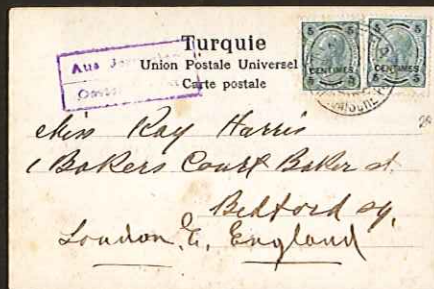 Turquie
Union Postale Universel
Carte postale
Aus
5 5
CENTIMES
5 5
5 5
CENTIMES
5 5
Miss Ray Harris
1 Bakers Court Baker st.
Bedford sq.
London, E, England